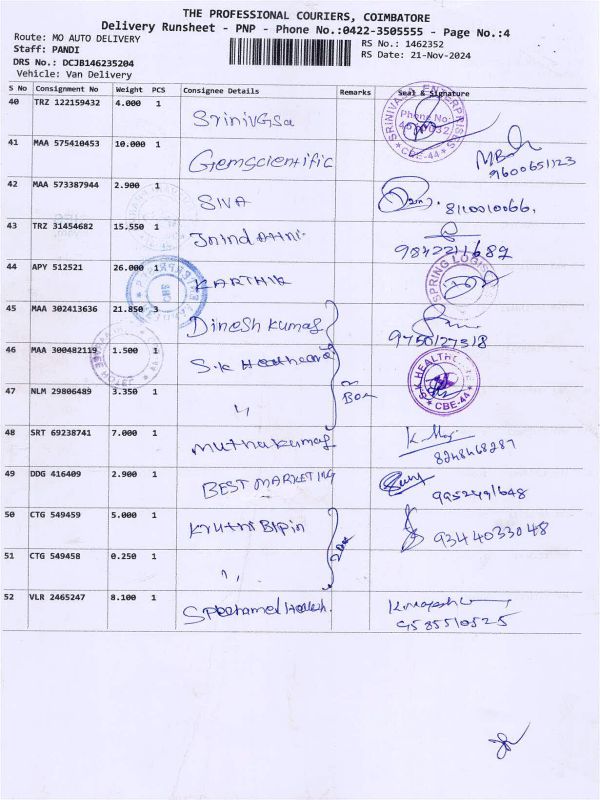 THE PROFESSIONAL COURIERS, COIMBATORE
Delivery Runsheet - PNP - Phone No.:0422-3505555 - Page No.:4
Route: MO AUTO DELIVERY RS No.: 1462352
Staff: PANDI RS Date: 21-Nov-2024
DRS No.: DCJB146235204
Vehicle: Van Delivery
S No Consignment No Weight PCS Consignee Details Remarks Seal & Signature
40 TRZ 122159432 4.000 1
SRINIVASA ENTERPRISES Phone No: CBE-44
41 MAA 575410453 10.000 1 Gemscientific 9600651123
42 MAA 573387944 2.900 1 SIVA 8110010066.
43 TRZ 31454682 15.550 1 9842211687
44 APY 512521 26.000 1 KARTHIK SPRING LOGIS
45 MAA 302413636 21.850 3 Dinesh kumar 9750127318
46 MAA 300482119 1.500 1 S.K Healthcare S.K HEALTHC CBE-44
47 NLM 29806489 3.350 1 "
48 SRT 69238741 7.000 1 muthukumar 8248468287
49 DDG 416409 2.900 1 BEST MARKETING 9952491648
50 CTG 549459 5.000 1 Kruthi Bipin 9344033048
51 CTG 549458 0.250 1 "
52 VLR 2465247 8.100 1 9585510525